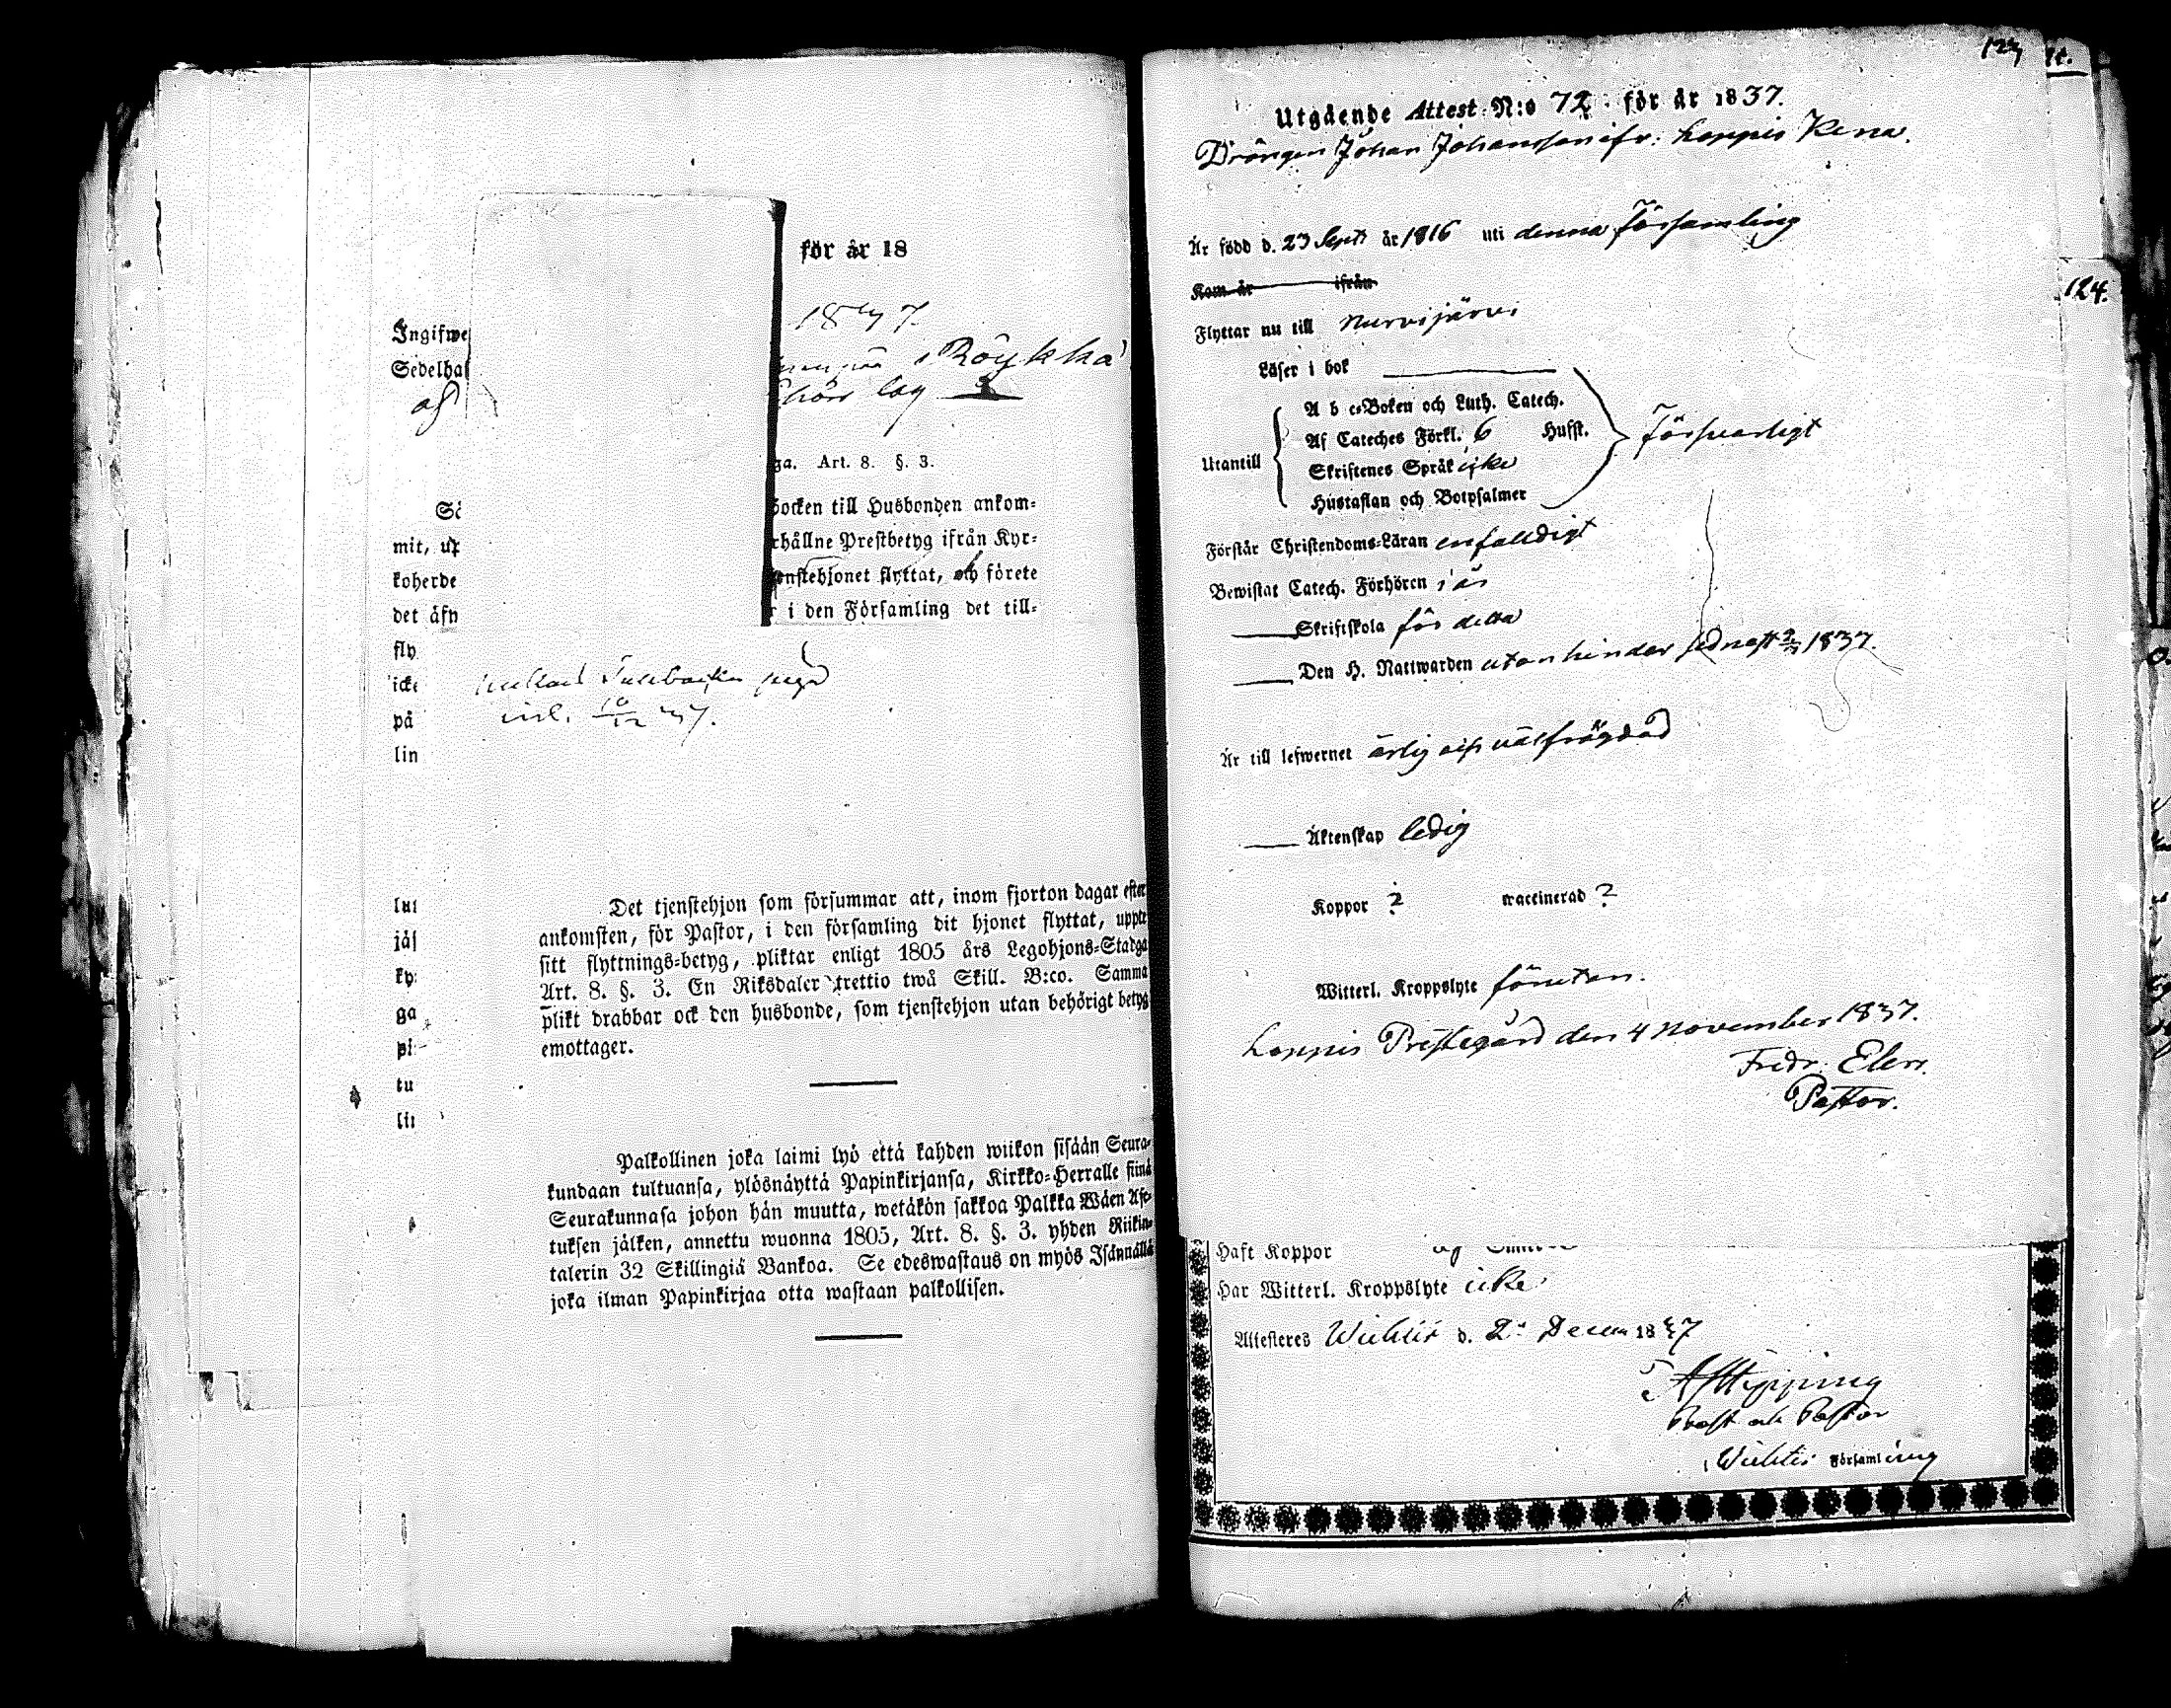 för år 18
1837.
Ingifwe
Sedelhaf
Röykkä
af
lag
ga. Art. 8. §. 3.
bocken till Husbonden ankom-
mit, up
rhållne Prestbetyg ifrån Kyr-
koherde
enstehjonet flyttat, och förete
det äfw
r i den Församling det till-
fly
icke
på
lin
10/12 37.
Det tjenstehjon som försummar att, inom fjorton dagar efter
ankomsten, för Pastor, i den församling dit hjonet flyttat, uppte
sitt flyttnings-betyg, pliktar enligt 1805 års Legohjons-Stadga
Art. 8. §. 3. En Riksdaler trettio twå Skill. B:co. Samma
plikt drabbar ock den husbonde, som tjenstehjon utan behörigt betyg
emottager.
Palkollinen joka laimi lyö että kahden wiikon sisään Seura-
kundaan tultuansa, ylösnäyttä Papinkirjansa, Kirkko-Herralle siinä
Seurakunnasa johon hän muutta, wetäkön sakkoa Palkka Wäen Ase-
tuksen jälken, annettu wuonna 1805, Art. 8. §. 3. yhden Riikin-
talerin 32 Skillingiä Bankoa. Se edeswastaus on myös Isännällä
joka ilman Papinkirjaa otta wastaan palkollisen.
lut
jäs
ky
ga
pi
tu
lin
123
Utgående Attest N:o 72 för år 1837.
Drängen Johan Johansson ifr: Loppis Kena.
Är född d. 23 Sept år 1816 uti denna Församling
Kom år ifrån
Flyttar nu till Nurmijärvi
124.
Läser i bok
A b c-Boken och Luth. Catech.
Af Cateches Förkl. 6 Hufst.
Utantill
Skriftenes Språk icke
försvarligt
Hustaflan och Botpsalmer
Förstår Christendoms-Läran enfaldigt
Bewistat Catech. Förhören i år
Skriftskola för detta
Den H. Nattwarden utan hinder sednast 1837.
Är till lefwernet ärlig och välfrägdad
Äktenskap ledig
Koppor ? waccinerad ?
Witterl. Kroppslyte förutan.
Loppis Prestegård den 4 November 1837.
Fredr. Elers.
Pastor.
Haft Koppor
Har Witterl. Kroppslyte icke
Attesteres Wichtis d. 2 Decem 1837
Prost och Pastor
Wichtis Församling